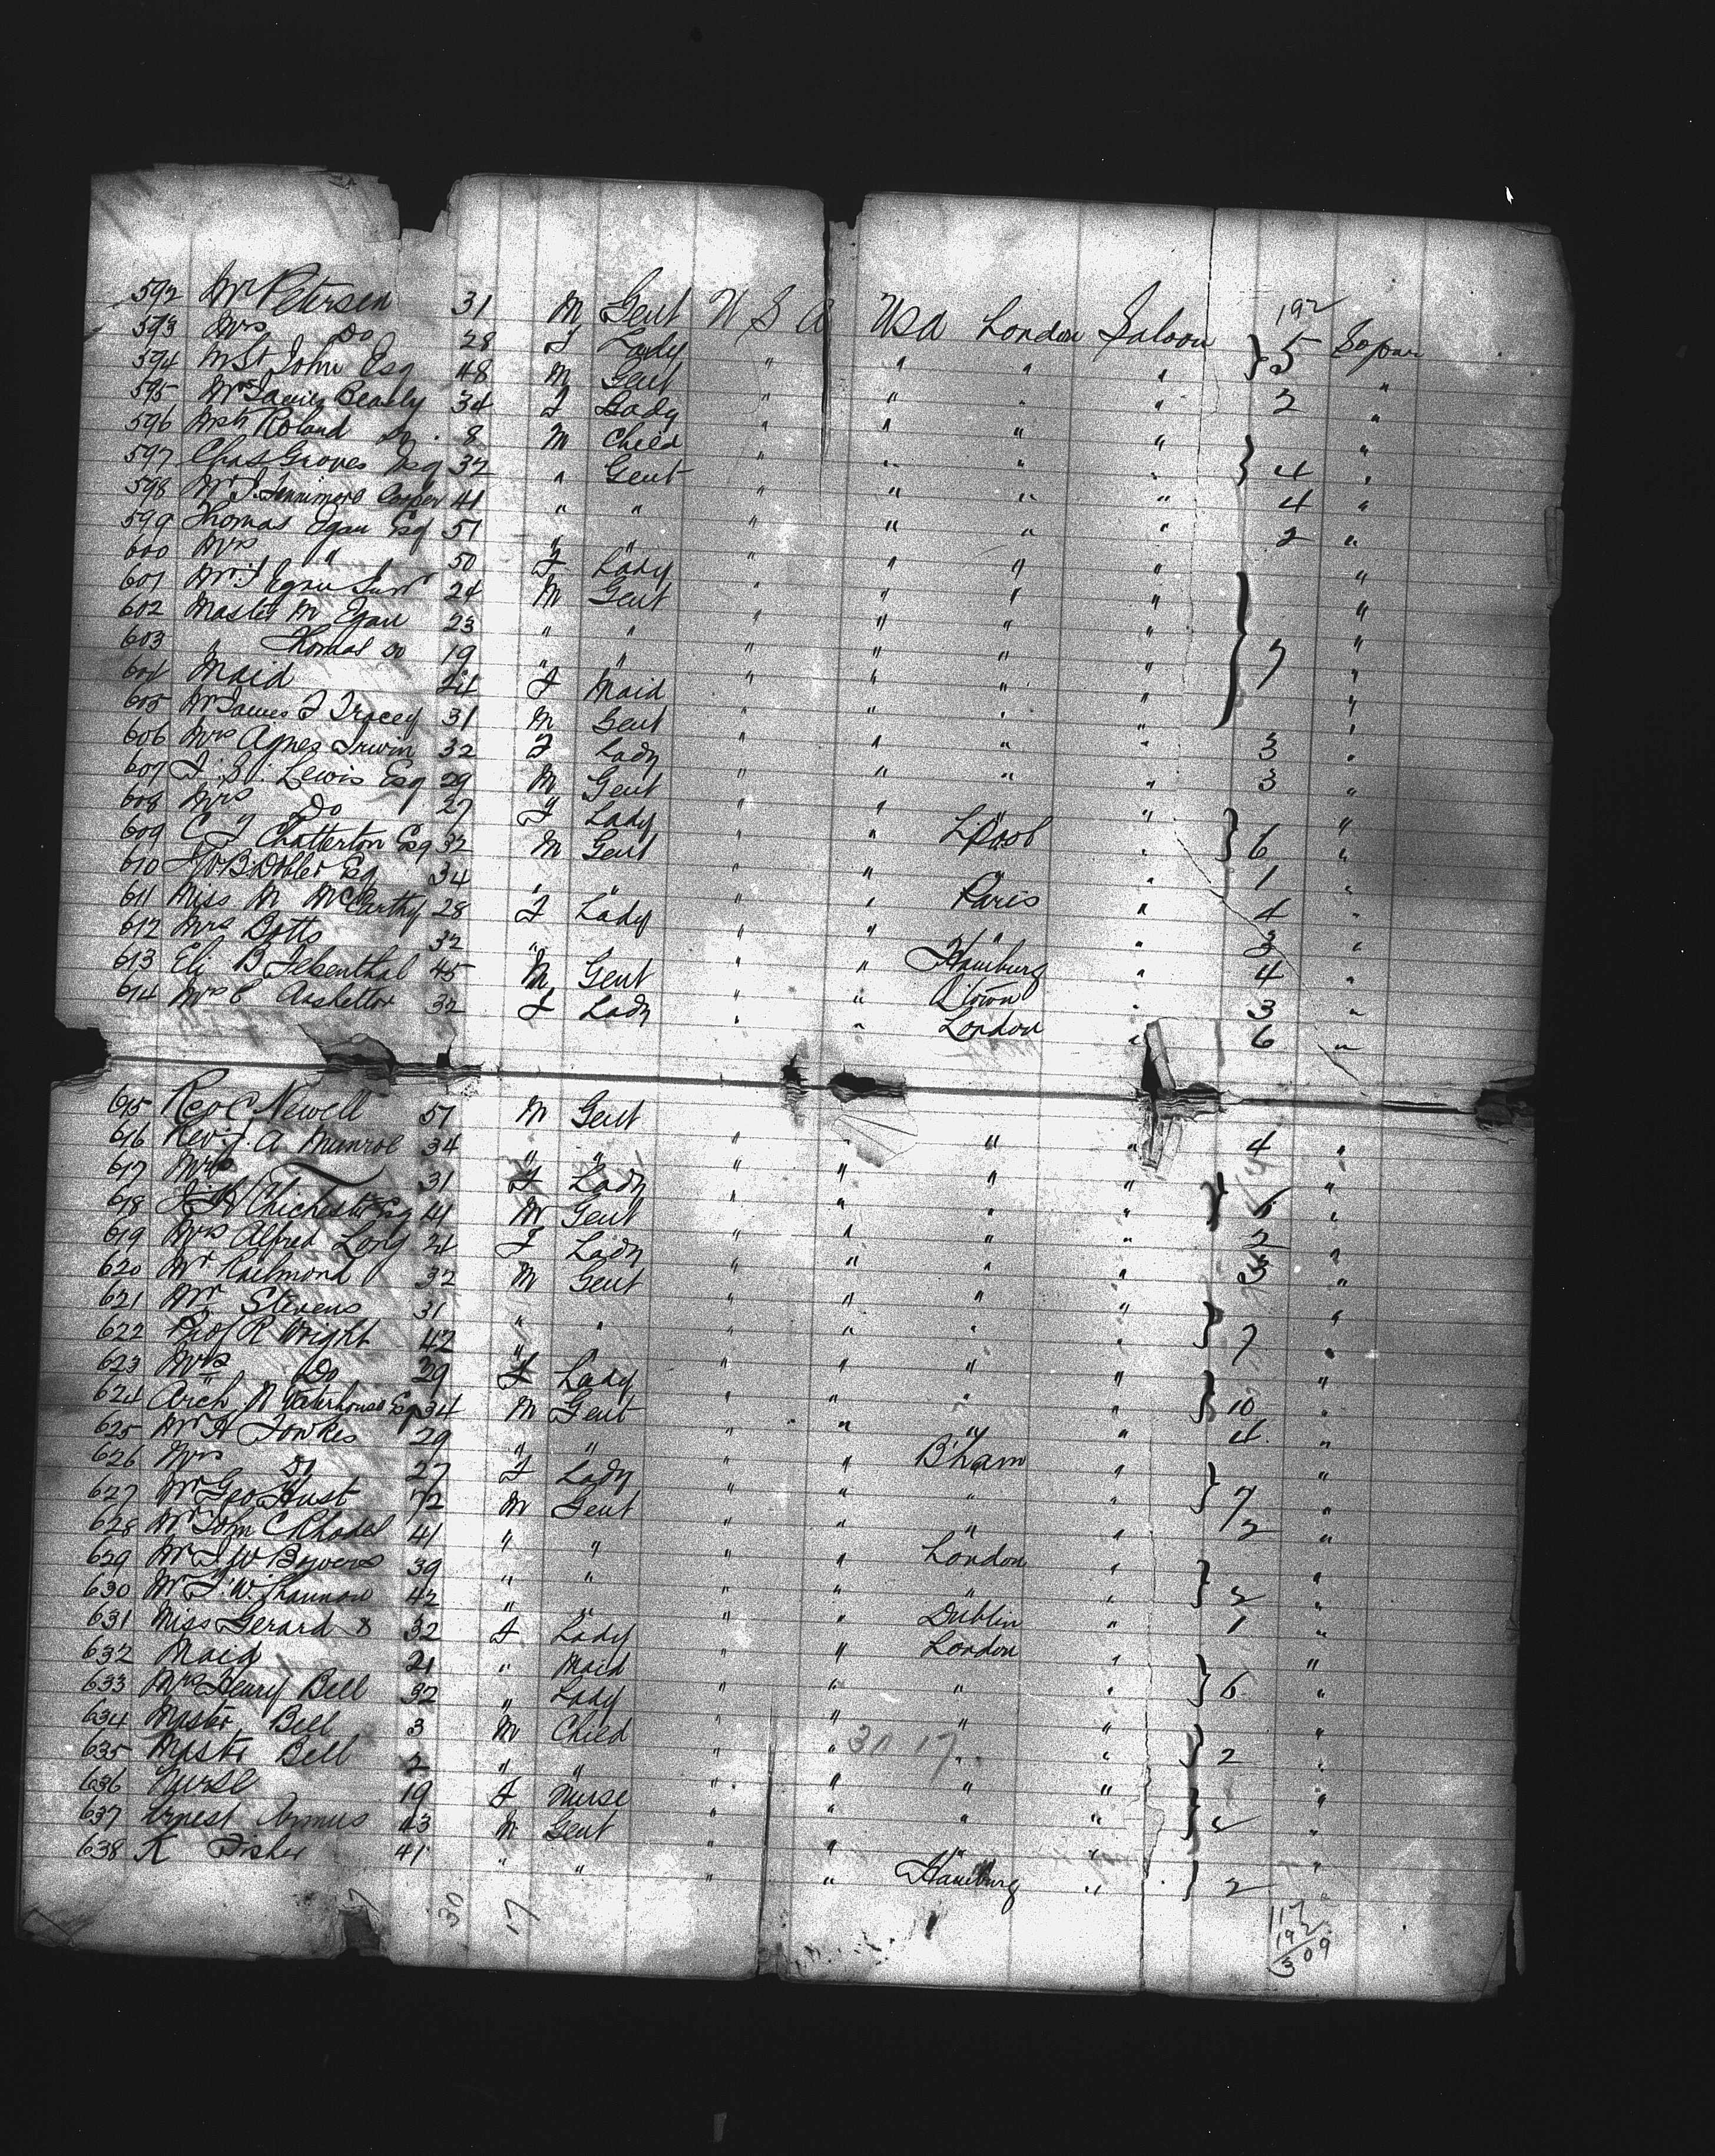 192
592 Mr Petersen 31 M Gent U S A USA London Saloon } 5 Sopar
593 Mrs Do 28 F Lady " " " " "
594 M St John Esq 48 M Gent " " " " 2 "
595 Mrs Beasly 34 F Lady " " " " "
596 Mstr Roland Do. 8 M Child " " " " } 4 "
597 Chas Groves Esq 32 " Gent " " " " 4 "
598 Mr J. Fennimore Cooper 41 " " " " " " 2 "
599 Thomas Egan Esq 51 " " " " " " "
600 Mrs " 50 F Lady " " " " "
601 Mr J Egan Junr 24 M Gent " " " " "
602 Master M Egan 23 " " " " " " } 7 "
603 " Thomas Do 19 " " " " " " "
604 Maid 24 F Maid " " " " "
605 Mr James F Tracey 31 M Gent " " " " 3 "
606 Mrs Agnes Irwin 32 F Lady " " " " 3 "
607 J. S. Lewis Esq 29 M Gent " " " " "
608 Mrs Do 27 F Lady " " " " } 6 "
609 C J Chatterton Esq 32 M Gent " " L'pool " 1 "
610 B Dobler Esq 34 " " " " Paris " 4 "
611 Miss M McCarthy 28 F Lady " " " " 3 "
612 Mrs Botts 32 " " " " Hamburg " 4 "
613 Eli B Felsenthal 45 M Gent " " Q'town " 3 "
614 Mrs C 32 F Lady " " London " 6 "
615 Rev C Newell 51 M Gent " " " " 4 "
616 Rev J. A Munroe 34 " " " " " " "
617 Mrs " 31 F Lady " " " " } 5 "
618 J H Chichester Esq 41 M Gent " " " " 2 "
619 Mrs Alfred Long 24 F Lady " " " " 3 "
620 Mr Railmond 32 M Gent " " " " "
621 Mr Stevens 31 " " " " " " } 7 "
622 Prof R Wright 42 " " " " " "
623 Mrs Do 39 F Lady " " " " } 10 "
624 Arch N Waterhouse Esq 34 M Gent " " " " 4 "
625 Mr H Fowkes 29 " " " " B'ham " "
626 Mrs Do 27 F Lady " " " " } 7 "
627 Mr Geo Hust 72 M Gent " " " " 2 "
628 Mr John C Rhodes 41 " " " " London " "
629 Mr J W Bowers 39 " " " " " " } 2 "
630 Mr J. W. Shannon 42 " " " " Dublin " 1 "
631 Miss Gerard & 32 F Lady " " London " "
632 Maid 21 " Maid " " " " } 6 "
633 Mrs Henry Bell 32 " Lady " " " " "
634 Master Bell 3 M Child " " 30 17 " " } 2 "
635 Mastr Bell 2 " " " " " " "
636 Nurse 19 F Nurse " " " " } "
637 Ernest 43 M Gent " " " " "
638 K Fisher 41 " " " " Hamburg " } 2
30 17
117
192
309